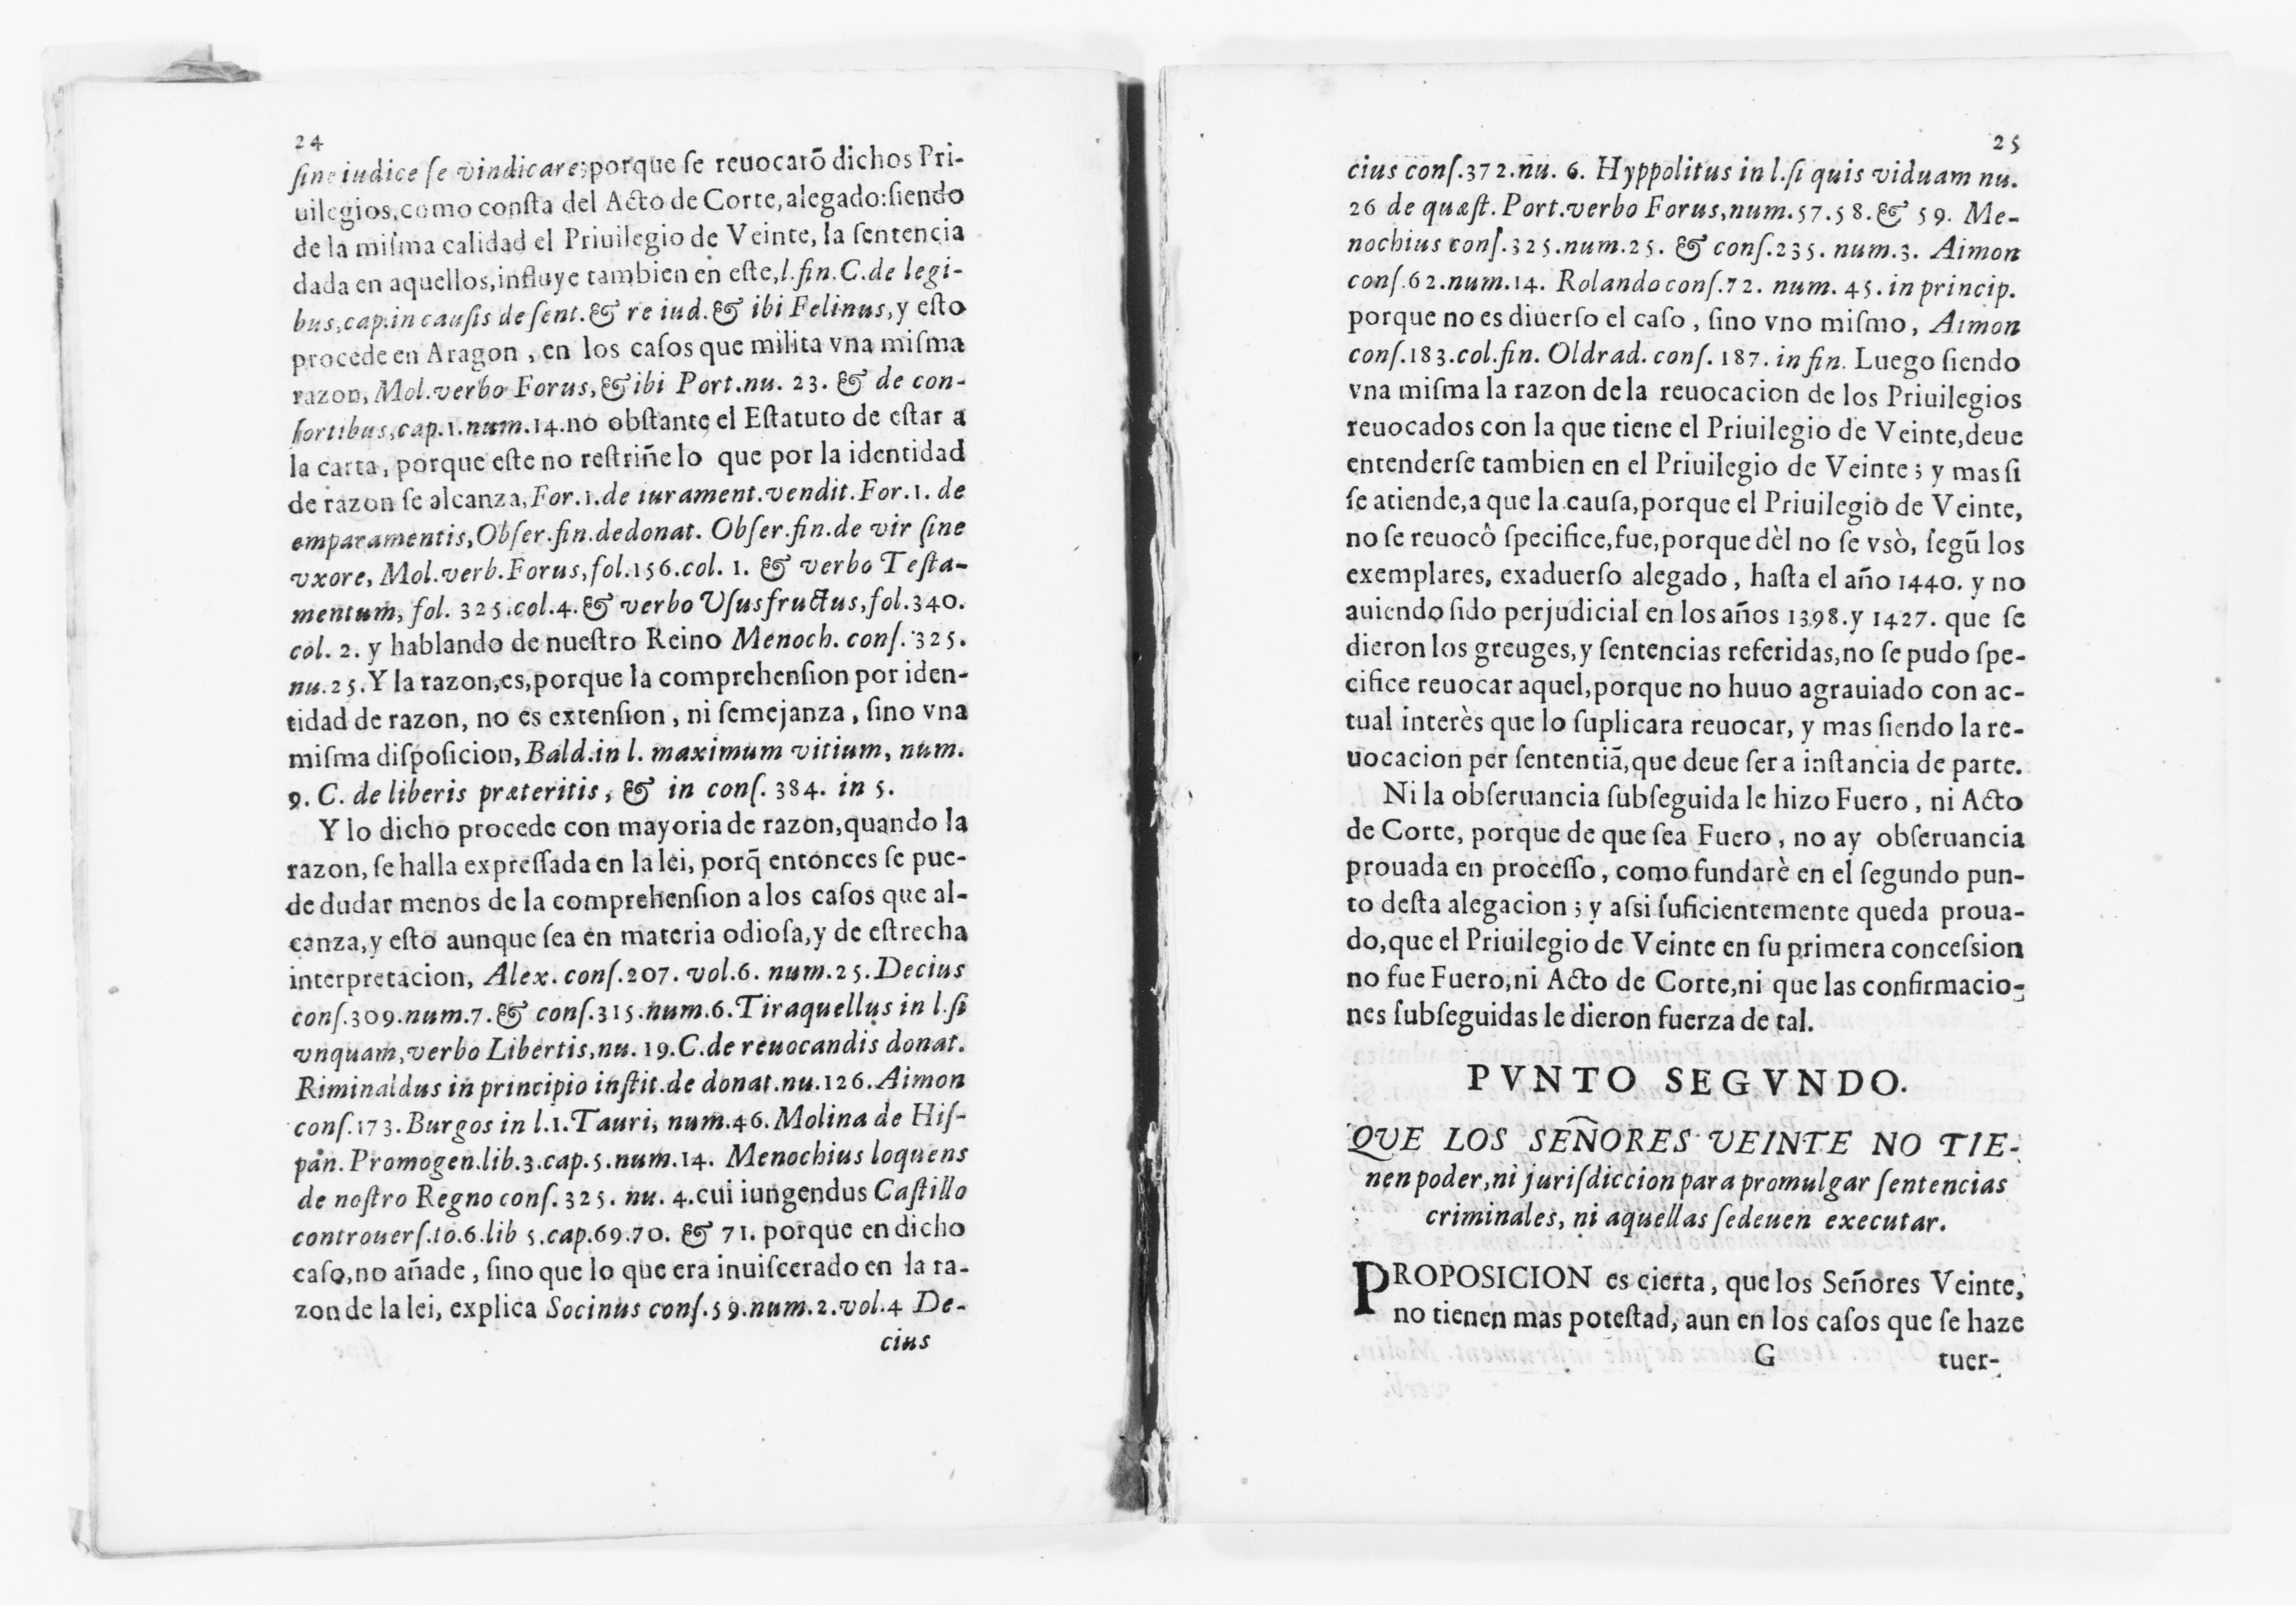 24
ſine iudice ſe vindicare; porque ſe reuocarõ dichos Pri-
uilegios, como conſta del Acto de Corte, alegado: ſiendo
de la miſma calidad el Priuilegio de Veinte, la ſentencia
dada en aquellos, influye tambien en eſte, l. fin. C. de legi-
bus, cap. in cauſis de ſent. & re iud. & ibi Felinus, y eſto
procede en Aragon, en los caſos que milita vna miſma
razon, Mol. verbo Forus, & ibi Port. nu. 23. & de con-
ſortibus, cap. 1. num. 14. no obſtante el Eſtatuto de eſtar a
la carta, porque eſte no reſtriñe lo que por la identidad
de razon ſe alcanza, For. 1. de iurament. vendit. For. 1. de
emparamentis, Obſer. fin. de donat. Obſer. fin. de vir ſine
vxore, Mol. verb. Forus, fol. 156. col. 1. & verbo Teſta-
mentum, fol. 325. col. 4. & verbo Uſusfructus, fol. 340.
col. 2. y hablando de nueſtro Reino Menoch. conſ. 325.
nu. 25. Y la razon, es, porque la comprehenſion por iden-
tidad de razon, no es extenſion, ni ſemejanza, ſino vna
miſma diſpoſicion, Bald. in l. maximum vitium, num.
9. C. de liberis præteritis, & in conſ. 384. in 5.
Y lo dicho procede con mayoria de razon, quando la
razon, ſe halla expreſſada en la lei, porq̃ entonces ſe pue-
de dudar menos de la comprehenſion a los caſos que al-
canza, y eſto aunque ſea en materia odioſa, y de eſtrecha
interpretacion, Alex. conſ. 207. vol. 6. num. 25. Decius
conſ. 309. num. 7. & conſ. 315. num. 6. Tiraquellus in l. ſi
vnquam, verbo Libertis, nu. 19. C. de reuocandis donat.
Riminaldus in principio inſtit. de donat. nu. 126. Aimon
conſ. 173. Burgos in l. 1. Tauri, num. 46. Molina de Hiſ-
pan. Promogen. lib. 3. cap. 5. num. 14. Menochius loquens
de noſtro Regno conſ. 325. nu. 4. cui iungendus Caſtillo
controuerſ. to. 6. lib 5. cap. 69. 70. & 71. porque en dicho
caſo, no añade, ſino que lo que era inuiſcerado en la ra-
zon de la lei, explica Socinus conſ. 59. num. 2. vol. 4 De-
cius
25
cius conſ. 372. nu. 6. Hyppolitus in l. ſi quis viduam nu.
26 de quæſt. Port. verbo Forus, num. 57. 58. & 59. Me-
nochius conſ. 325. num. 25. & conſ. 235. num. 3. Aimon
conſ. 62. num. 14. Rolando conſ. 72. num. 45. in princip.
porque no es diuerſo el caſo, ſino vno miſmo, Aimon
conſ. 183. col. fin. Oldrad. conſ. 187. in fin. Luego ſiendo
vna miſma la razon de la reuocacion de los Priuilegios
reuocados con la que tiene el Priuilegio de Veinte, deue
entenderſe tambien en el Priuilegio de Veinte; y mas ſi
ſe atiende, a que la cauſa, porque el Priuilegio de Veinte,
no ſe reuocô ſpecifice, fue, porque dèl no ſe vsò, ſegũ los
exemplares, exaduerſo alegado, haſta el año 1440. y no
auiendo ſido perjudicial en los años 1398. y 1427. que ſe
dieron los greuges, y ſentencias referidas, no ſe pudo ſpe-
cifice reuocar aquel, porque no huuo agrauiado con ac-
tual interès que lo ſuplicara reuocar, y mas ſiendo la re-
uocacion per ſententiã, que deue ſer a inſtancia de parte.
Ni la obſeruancia ſubſeguida le hizo Fuero, ni Acto
de Corte, porque de que ſea Fuero, no ay obſeruancia
prouada en proceſſo, como fundarè en el ſegundo pun-
to deſta alegacion; y aſsi ſuficientemente queda proua-
do, que el Priuilegio de Veinte en ſu primera conceſsion
no fue Fuero, ni Acto de Corte, ni que las confirmacio-
nes ſubſeguidas le dieron fuerza de tal.
PVNTO SEGVNDO.
QVE LOS SEÑORES VEINTE NO TIE-
nen poder, ni juriſdiccion para promulgar ſentencias
criminales, ni aquellas ſe deuen executar.
PROPOSICION es cierta, que los Señores Veinte,
no tienen mas poteſtad, aun en los caſos que ſe haze
G tuer-